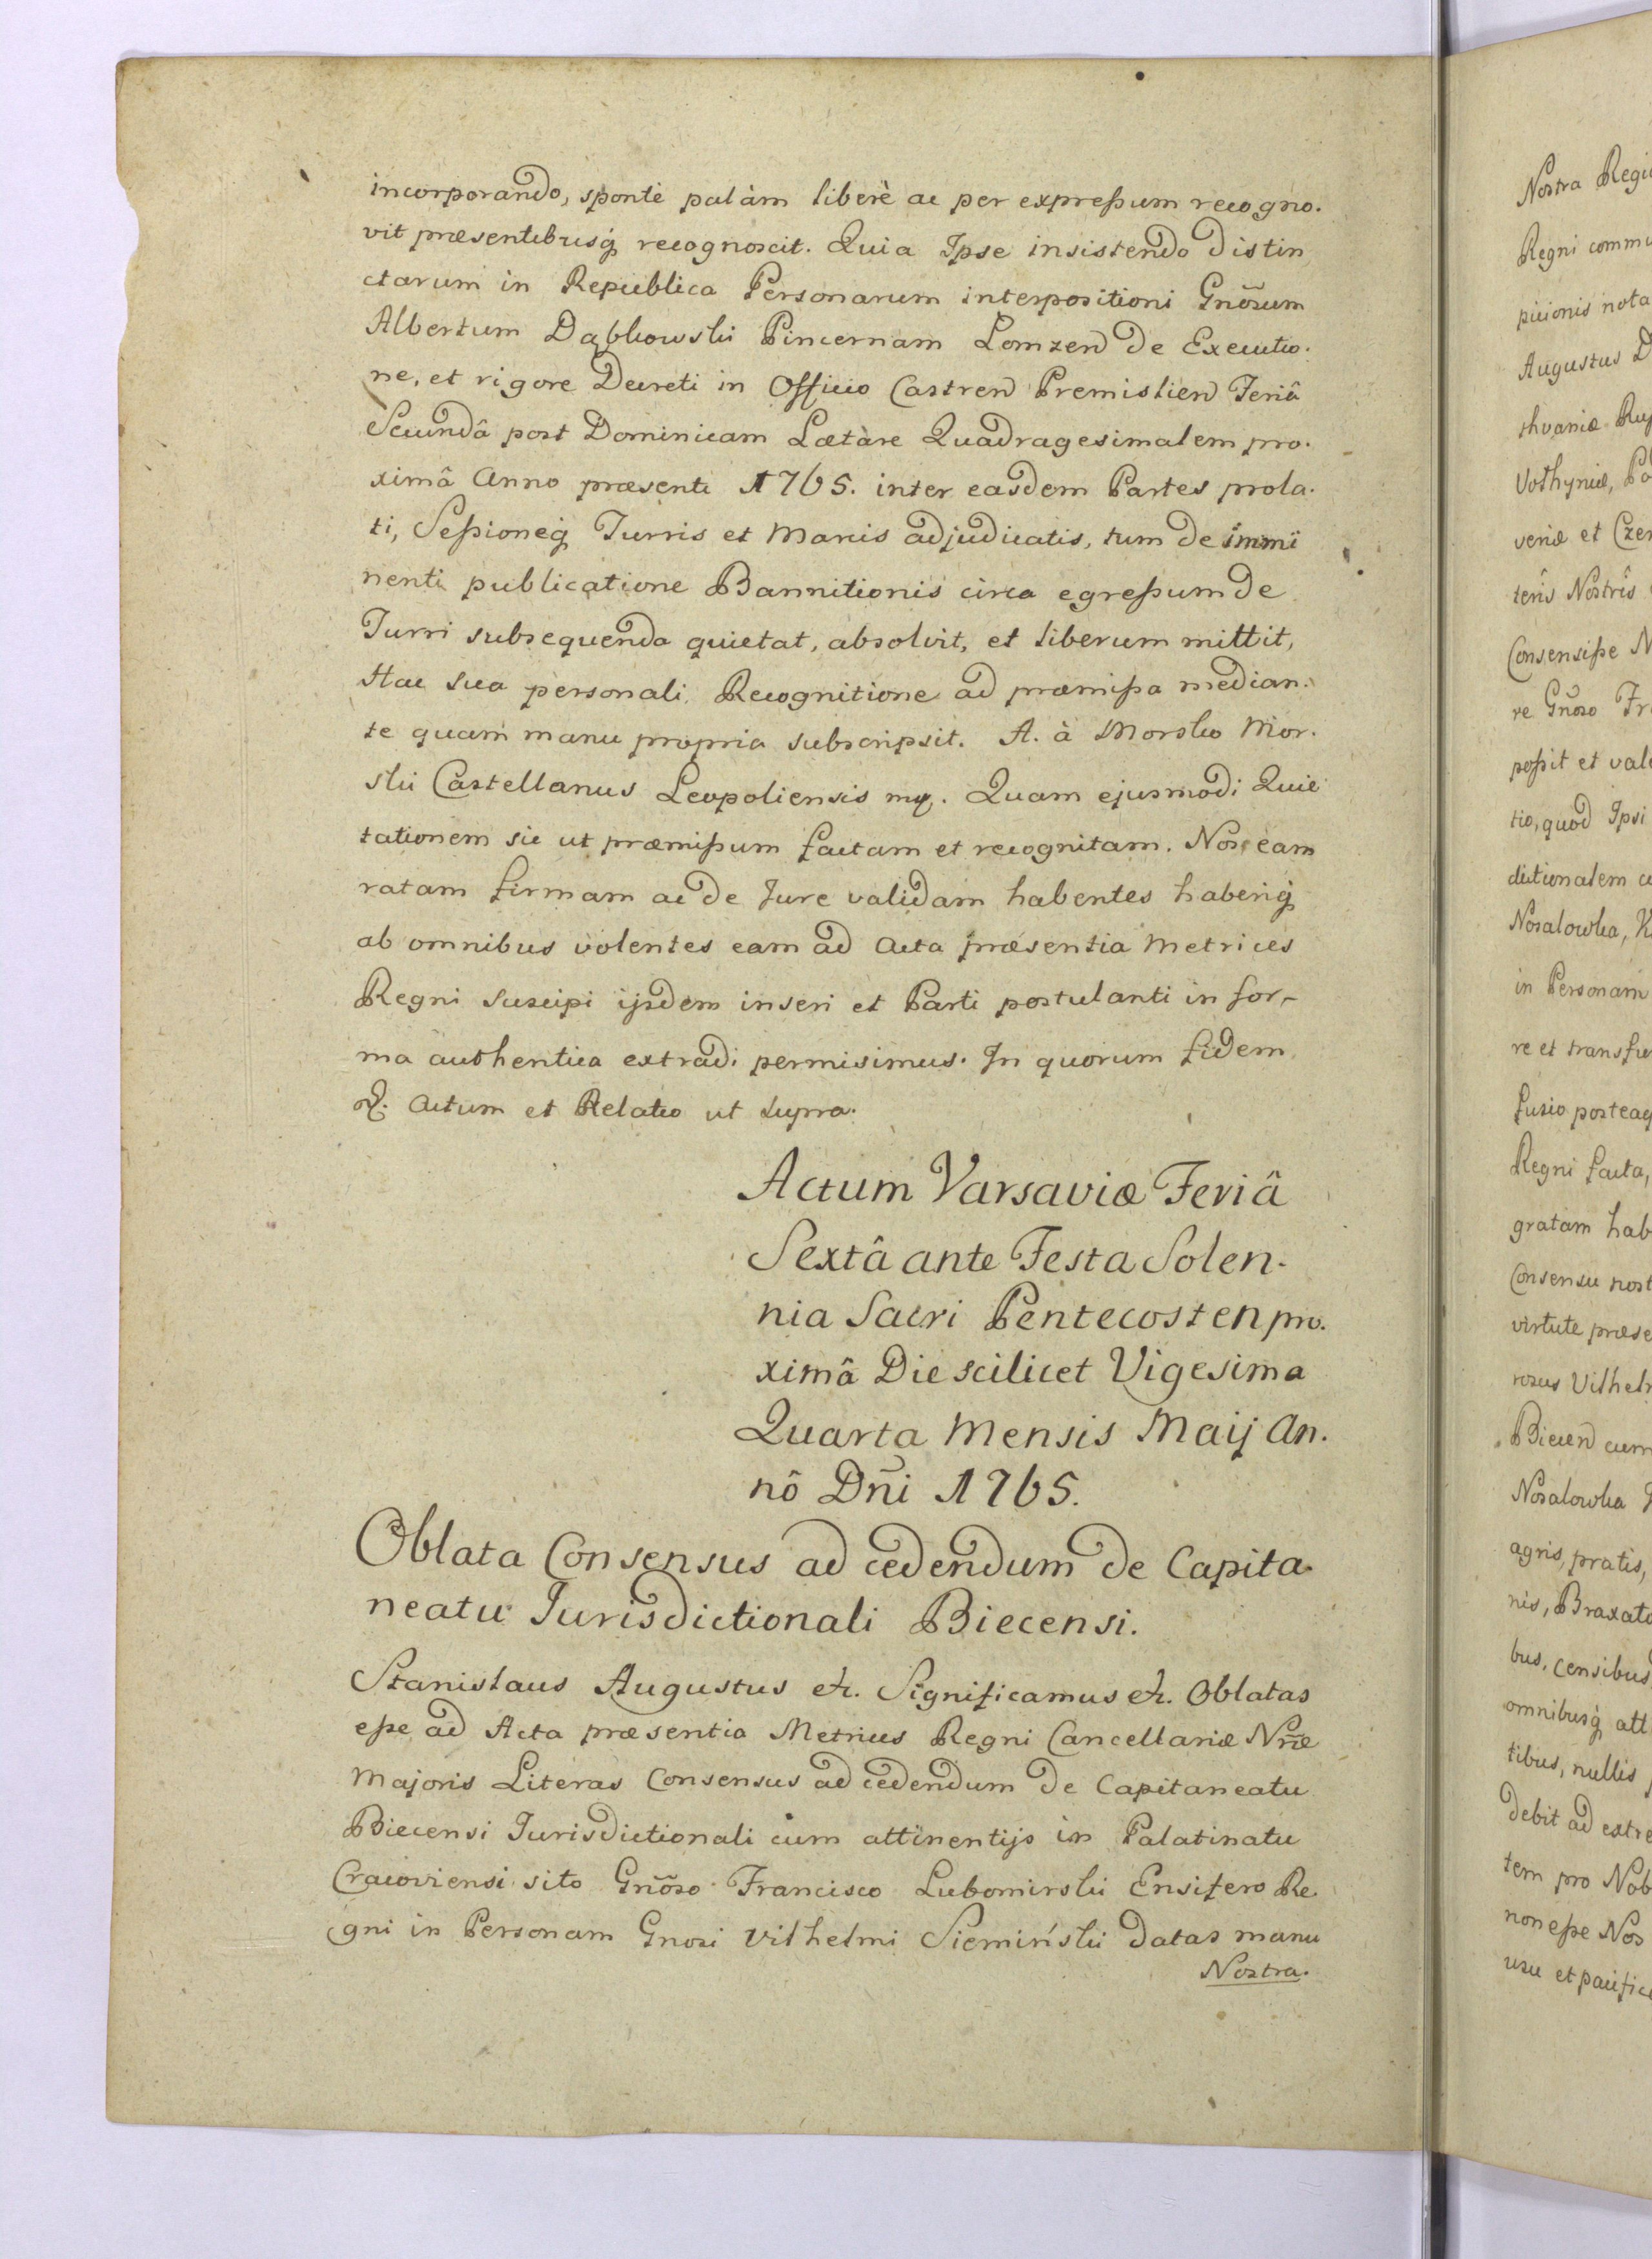 incorporando, spontè palàm liberè ac per expressum recogno.
vit præsentibusq́ recognoscit. Quia Ipse insistendo distin
ctarum in Republica Personarum interpositioni Gnõsum
Albertum Dąbkowski Pincernam Lomzen de Executio.
ne, et rigore Decreti in Officio Castren Premislien Feriâ
Secundâ post Dominicam Lætàre Quadragesimalem pro.
ximâ Anno præsenti 1765. inter easdem Partes prola.
ti, Sessioneq́ Turris et Marcis adjudicatis, tum de immi
nenti publicatione Bannitionis circa egressum de
Turri subsequenda quietat, absolvit, et liberum mittit,
Hac sua personali Recognitione ad præmissa median.
te quam manu propria subscripsit. A. à Morsko Mor.
ski Castellanus Leopoliensis mp. Quam ejusmodi Quie
tationem sic ut præmissum factam et recognitam. Nos eam
ratam firmam ac de Jure validam habentes haberiq́
ab omnibus volentes eam ad Acta præsentia Metrices
Regni suscipi ijsdem inseri et Parti postulanti in for-
ma authentica extradi permisimus. In quorum fidem
&. Actum et Relatio ut supra.
Actum Varsaviæ Feriâ
Sextâ ante Festa Solen.
nia Sacri Pentecosten pro.
ximâ Die scilicet Vigesima
Quarta Mensis Maij An.
nô Dñi 1765.
Oblata Consensus ad cedendum de Capita.
neatu Jurisdictionali Biecensi.
Stanislaus Augustus etc. Significamus etc. Oblatas
esse ad Acta præsentia Metrices Regni Cancellariæ Nræ
Majoris Literas Consensus ad cedendum de Capitaneatu
Biecensi Jurisdictionali cum attinentijs in Palatinatu
Cracoviensi sito Gnõso Francisco Lubomirski Ensifero Re.
gni in Personam Gnosi Vilhelmi Siemiński datas manu
Nostra.
Nostra
Regni
picionis nota
Augustus
thvaniæ
veriæ et
teris Nostris
Consensisse
re Gñoso
possit et
tio, quod Ipsi
dictionalem
Nosalowka,
in Personam
re et
fusio
Regni facta,
gratam
Consensu
virtute
Biecen cum
Nosalowka
agris, pratis,
nis,
bus, censibus
omnibusq́
tibus, nullis
debit ad
tem pro
non esse Nos
usu et